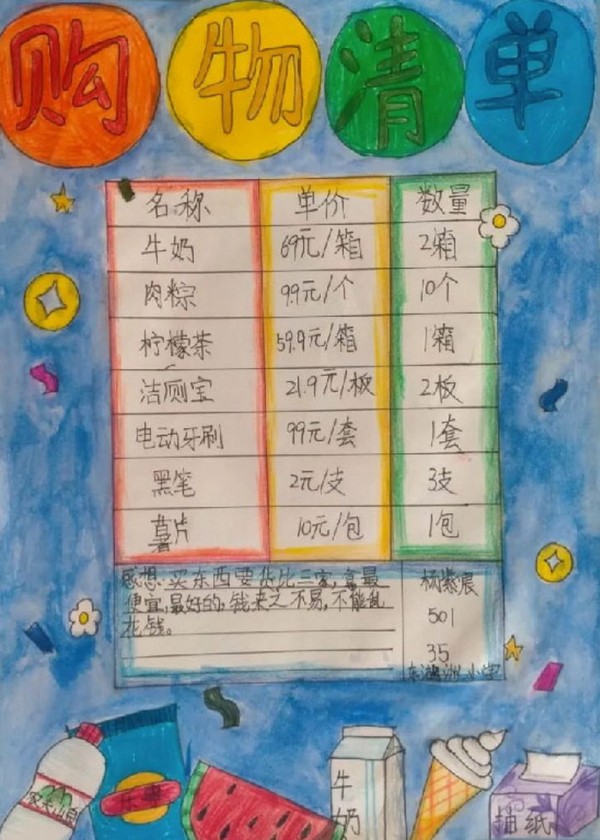 购物清单
名称 单价 数量
牛奶 69元/箱 2箱
肉粽 9.9元/个 10个
柠檬茶 59.9元/箱 1箱
洁厕宝 21.9元/板 2板
电动牙刷 99元/套 1套
黑笔 2元/支 3支
薯片 10元/包 1包
感想:买东西要货比三家,拿最
便宜,最好的,钱来之不易,不能乱
花钱。
杨紫宸
501
35
牛
奶
抽纸